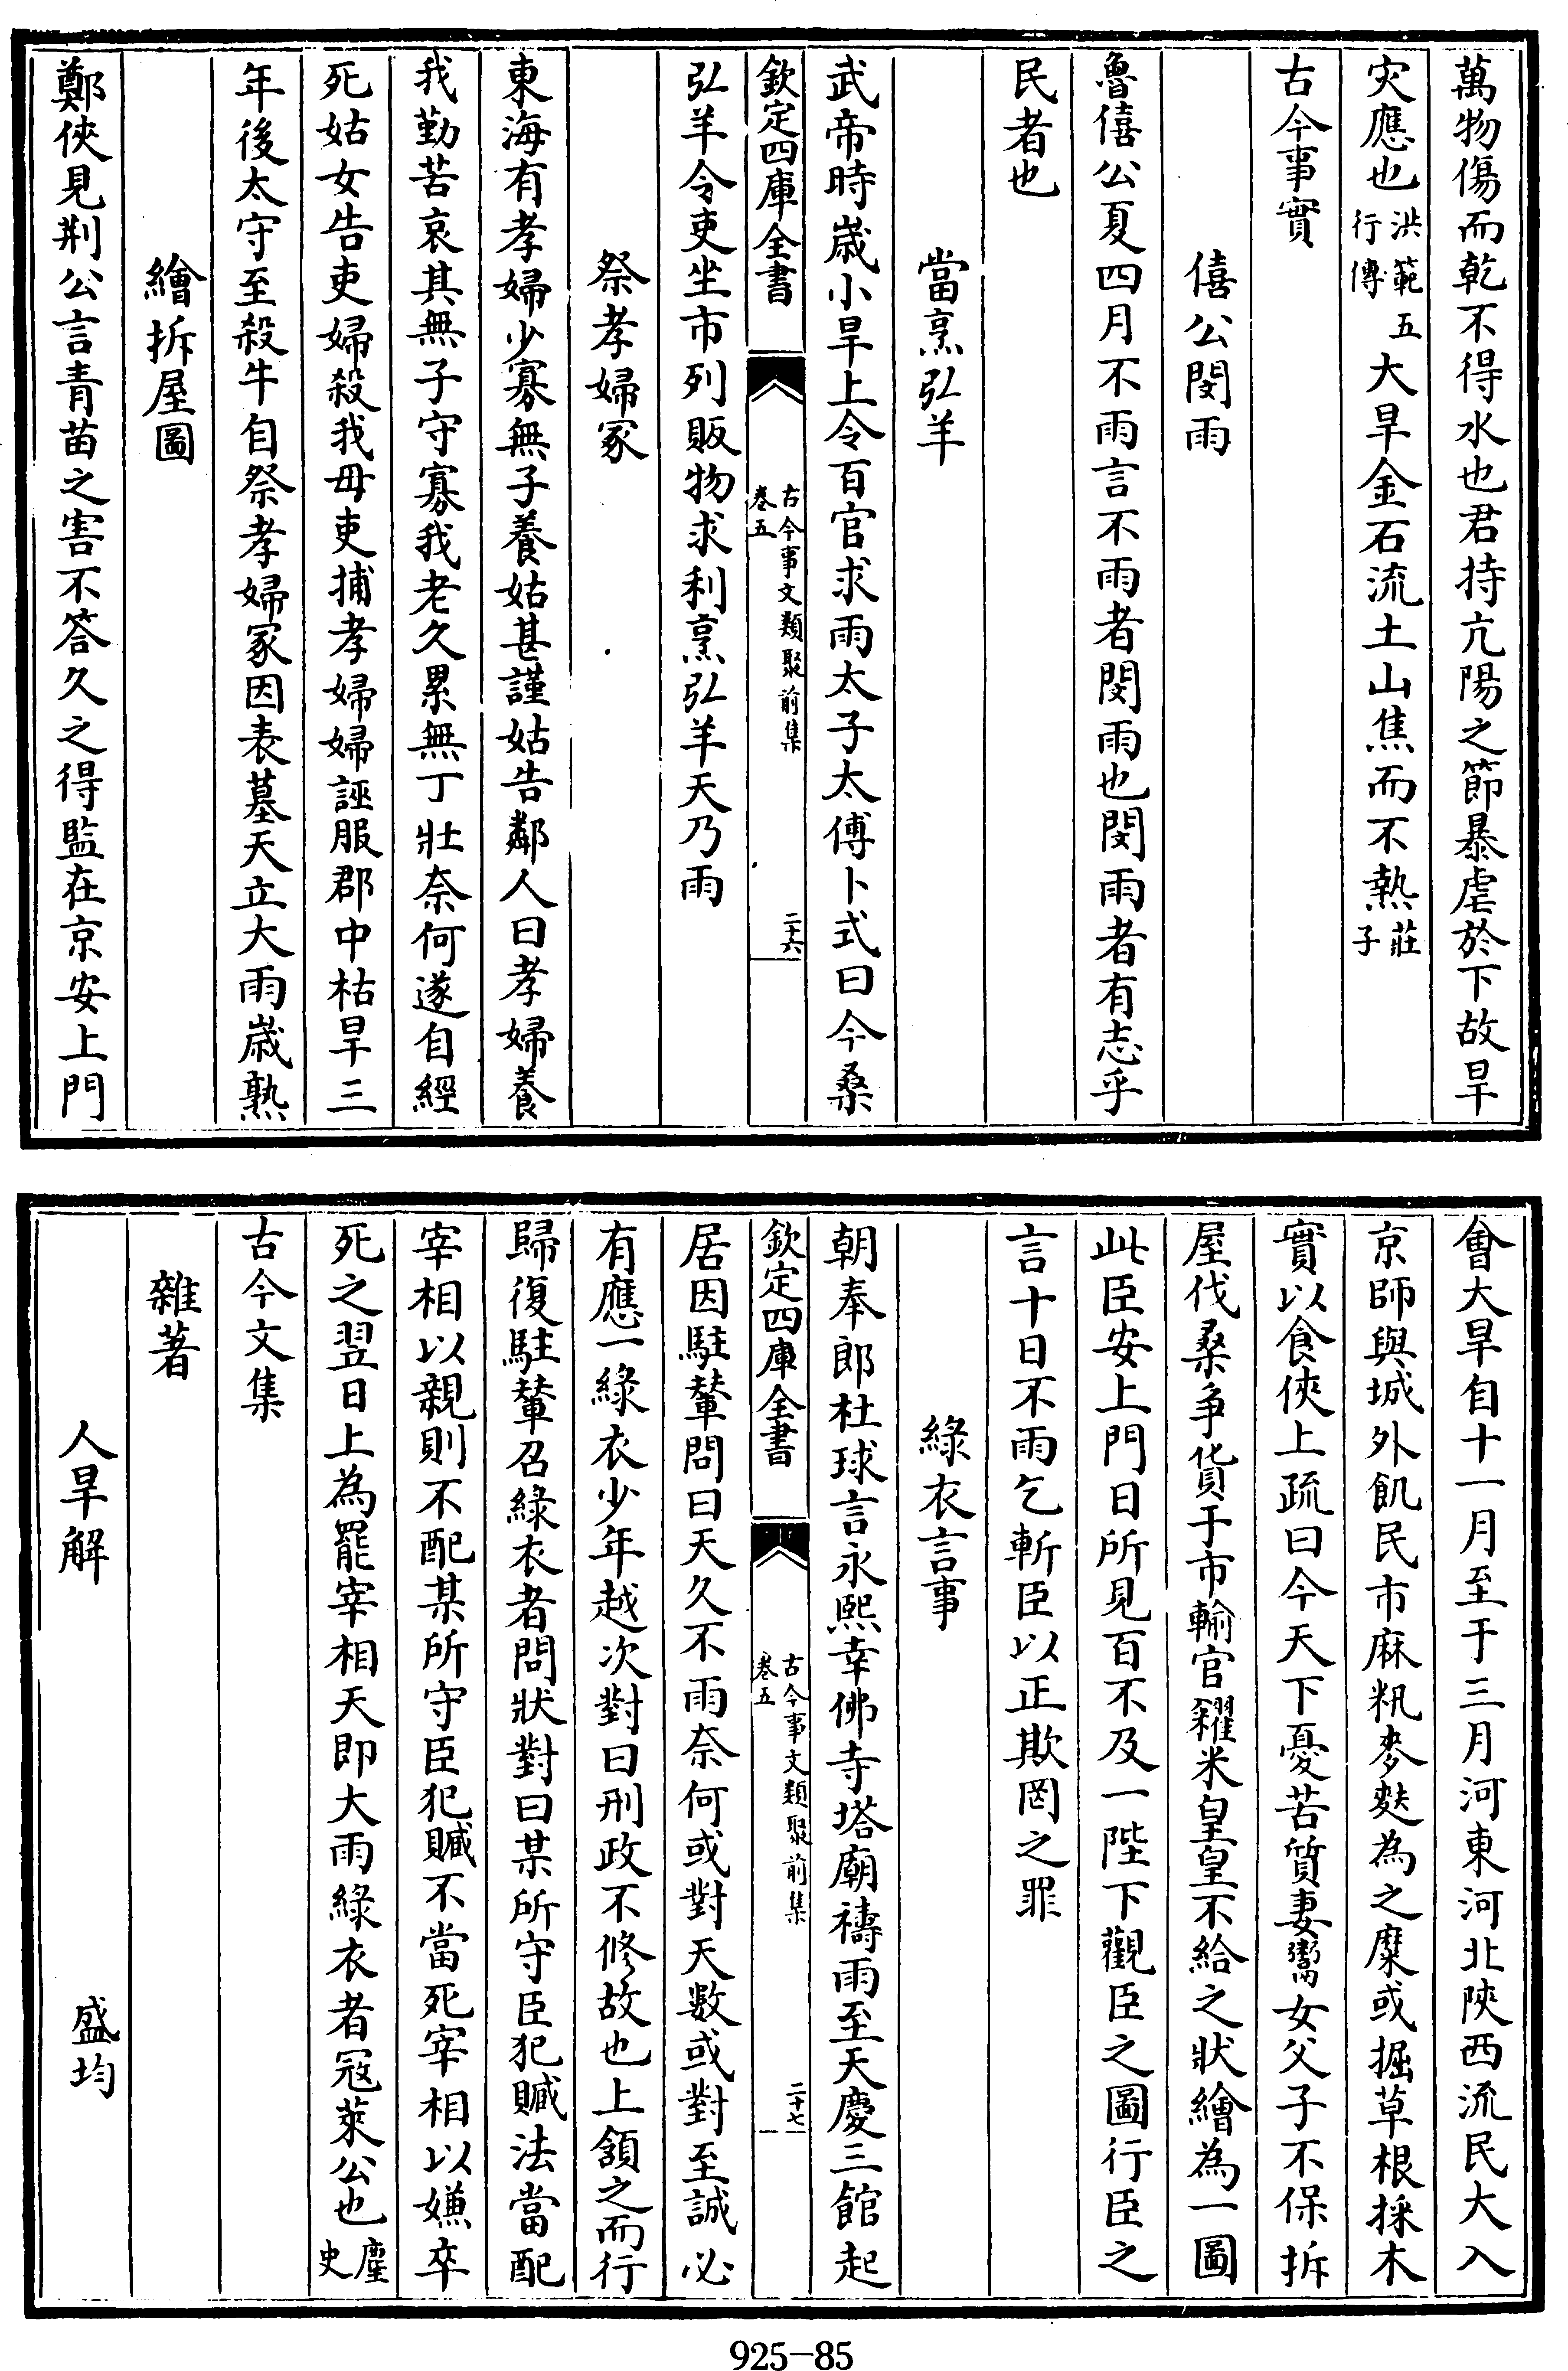 萬物傷而乾不得水也君持亢陽之節暴虐於下故旱
灾應也洪範五行傳大旱金石流土山焦而不熱莊子
古今事實
僖公閔雨
魯僖公夏四月不雨言不雨者閔雨也閔雨者有志乎
民者也
當烹弘羊
武帝時歲小旱上令百官求雨太子太傅卜式曰今桑
欽定四庫全書
古今事文類聚前集
卷五
二十六
弘羊令吏坐市列販物求利烹弘羊天乃雨
祭孝婦冢
東海有孝婦少寡無子養姑甚謹姑告鄰人曰孝婦養
我勤苦哀其無子守寡我老久累無丁壯奈何遂自經
死姑女告吏婦殺我毋吏捕孝婦婦誣服郡中枯旱三
年後太守至殺牛自祭孝婦冢因表墓天立大雨歲熟
繪拆屋圖
鄭俠見荆公言青苗之害不答久之得監在京安上門
會大旱自十一月至于三月河東河北陝西流民大入
京師與城外飢民市麻籸麥麩為之糜或掘草根採木
實以食俠上疏曰今天下憂苦質妻鬻女父子不保拆
屋伐桑爭貨于市輸官糴米皇皇不給之狀繪為一圖
此臣安上門日所見百不及一陛下觀臣之圖行臣之
言十日不雨乞斬臣以正欺罔之罪
綠衣言事
朝奉郎杜球言永熙幸佛寺塔廟禱雨至天慶三館起
欽定四庫全書
古今事文類聚前集
卷五
二十七
居因駐輦問曰天久不雨奈何或對天數或對至誠必
有應一綠衣少年越次對曰刑政不修故也上頷之而行
歸復駐輦召綠衣者問狀對曰某所守臣犯贓法當配
宰相以親則不配某所守臣犯贓不當死宰相以嫌卒
死之翌日上為罷宰相天即大雨綠衣者冦萊公也塵史
古今文集
雜著
人旱解 盛均
925-85